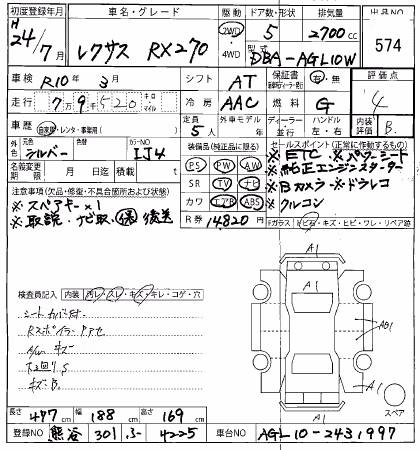 初度登録年月 車名・グレード 駆動 ドア数・形状 排気量 出品NO
H 24/7月 レクサス RX270 2WD 4WD 5 2700cc 574
型式 DBA-AGL10W
車検 R10年 3月 シフト AT 保証書 有・無 評価点 4
走行 7万9千520 キロ マイル 冷房 AAC 燃料 G 内装評価 B
車歴 自家用・レンタ・事業用 定員 5人 外車モデル年 ディーラー 並行 ハンドル 左・右
元色 シルバー 色替 カラーNO 1J4
装備品(純正品に限る)
セールスポイント(正常に作動するもの)
名義変更期限 月 日迄 積載量 t
PS PW AW
SR TV ナビ
カワ エアB ABS
R券 14,820円
※ETC ※パワーシート
※純正エンジンスターター
※Bカメラ ※ドラレコ
※クルコン
注意事項(欠品・修復・不具合箇所および状態)
※スペアキー×1
※取説・ナビ取・保 後送
Fガラス トビ石・キズ・ヒビ・ワレ・リペア跡
検査員記入 内装 汚レ・スレ・キズ・キレ・コゲ・穴
シートカバー付
Rスポイラー
A/W キズ
キズB
A1
AB1
A1
A1
スペア
長さ 477 幅 188 高さ 169
登録NO 熊谷 301 ふ 4225 車台NO AGL10-2431997